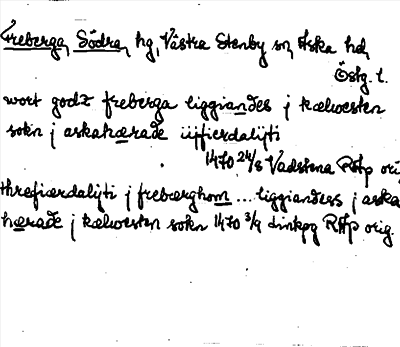 Freberga, Södra, hg, Västra Stenby sn, Aska hd,
Östg. l.
wort godz freberga liggiandes j kælwesten
sokn j askahærade
1470 24/8 Vadstena RAp orig
threfiærdalijti j frebærghom ... liggianderss j aska
hærade j kælwesten sokn 1470 3/9 Linkpg RAp orig.